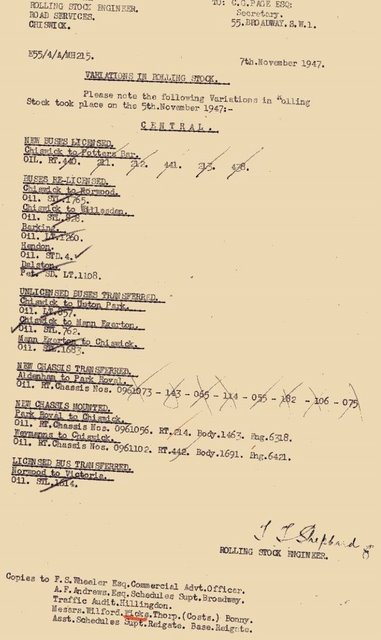 ROLLING STOCK ENGINEER. TO: C.G.PAGE ESQ:
ROAD SERVICES. Secretary.
CHISWICK. 55.BROADWAY.S.W.1.
E55/4/A/MH215. 7th.November 1947.
VARIATIONS IN ROLLING STOCK.
Please note the following Variations in "olling
Stock took place on the 5th.November 1947:-
CENTRAL.
NEW BUSES LICENSED.
Chiswick to Potters Bar.
OIL. RT.440. 212. 441. 213. 438.
BUSES RE-LICENSED.
Chiswick to Norwood.
Oil. STL.1765.
Chiswick to Willesden.
Oil. STL.828.
Barking.
Oil. LT.1260.
Hendon.
Oil. STD.4.
Dalston.
Pet. SD. LT.1108.
UNLICENSED BUSES TRANSFERRED.
Chiswick to Upton Park.
Oil. LT.857.
Chiswick to Mann Egerton.
Oil. STL.762.
Mann Egerton to Chiswick.
Oil. STL.1683.
NEW CHASSIS TRANSFERRED.
Aldenham to Park Royal.
Oil. RT.Chassis Nos. 0961073 - 143 - 065 - 114 - 055 - 182 - 106 - 075
NEW CHASSIS MOUNTED.
Park Royal to Chiswick.
Oil. RT.Chassis Nos. 0961056. RT.214. Body.1463. Eng.6318.
Weymanns to Chiswick.
Oil. RT.Chassis Nos. 0961102. RT.442. Body.1691. Eng.6421.
LICENSED BUS TRANSFERRED.
Norwood to Victoria.
Oil. STL.1614.
ROLLING STOCK ENGINEER.
Copies to F.S.Wheeler Esq.Commercial Advt.Officer.
A.F.Andrews.Esq.Schedules Supt.Broadway.
Traffic Audit.Hillingdon.
Messrs.Wilford.Hicks.Thorp.(Costs) Bonny.
Asst.Schedules Supt.Reigate. Base.Reigate.